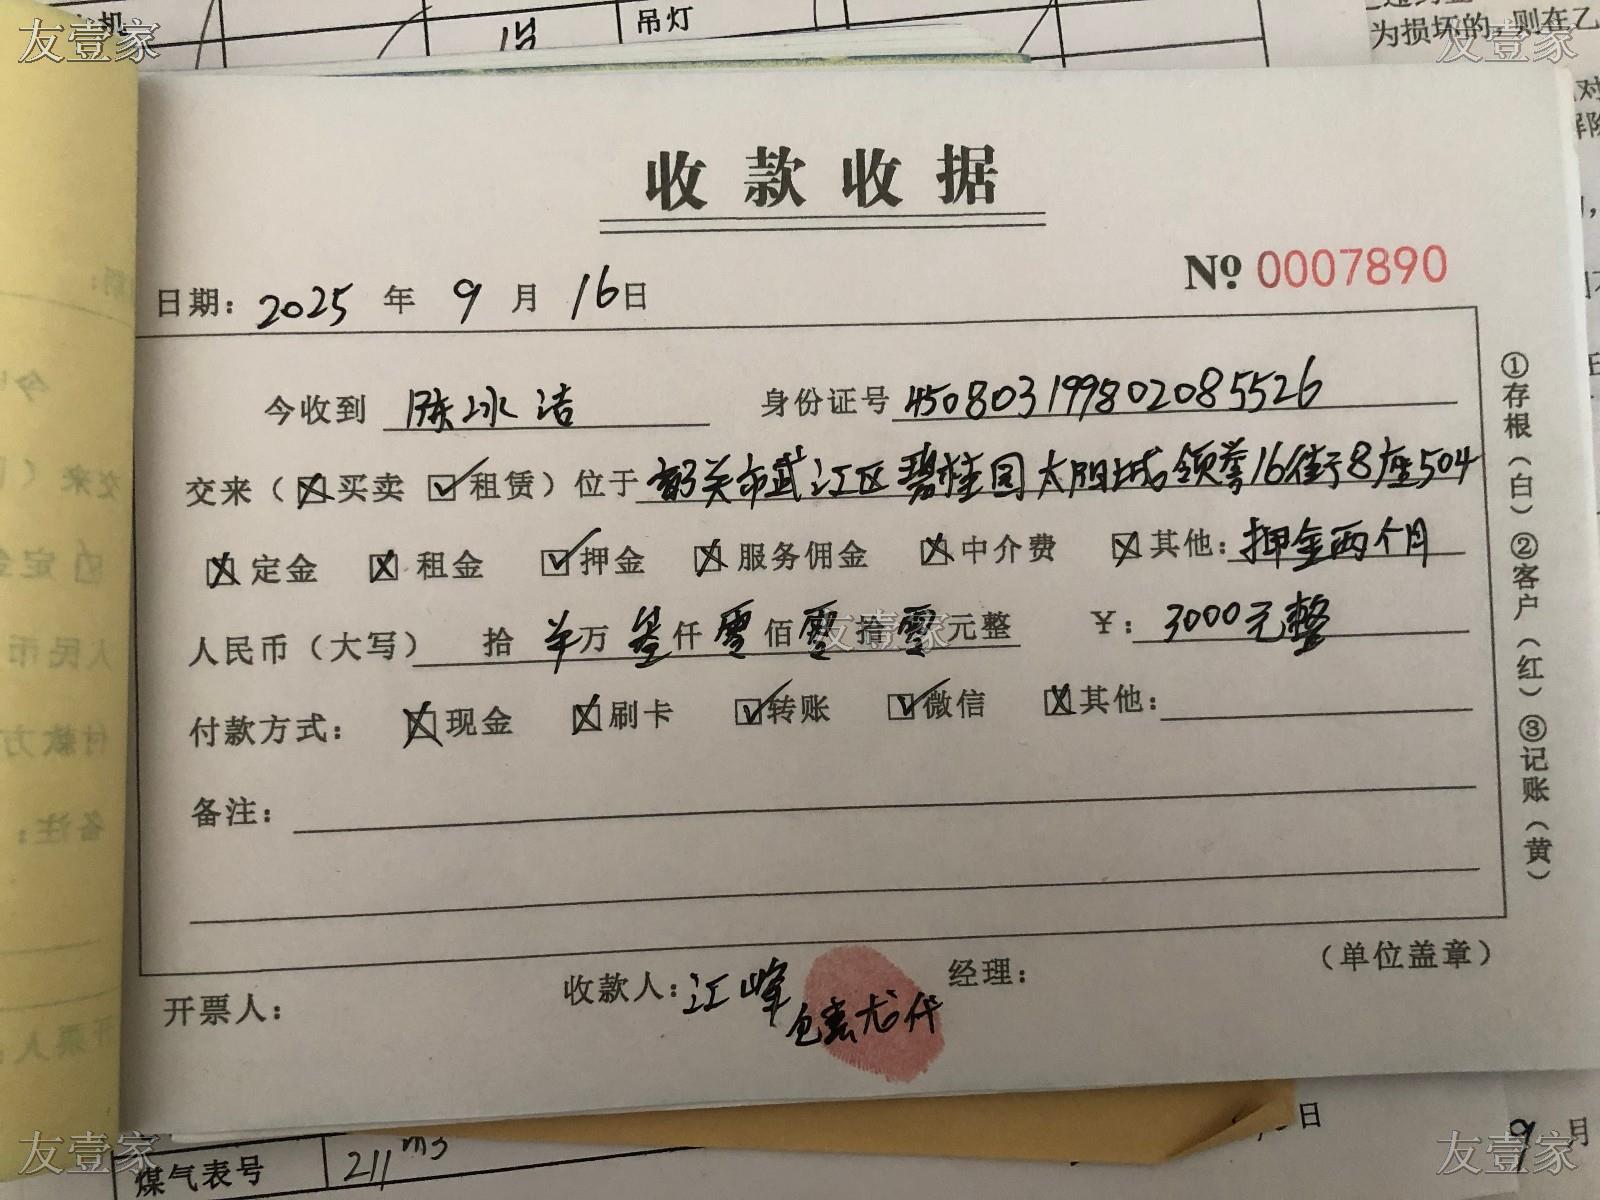 友壹家
吊灯
友壹家
为损坏的，则在乙
收款收据
№ 0007890
日期：2025年9月16日
今收到 陈冰洁 身份证号 450803199802085526
交来（☒买卖 ☑租赁）位于 韶关市武江区碧桂园太阳城领誉16街8座504
☒定金 ☒租金 ☑押金 ☒服务佣金 ☒中介费 ☒其他：押金两个月
人民币（大写） 拾 羊万 叁仟 零佰 零拾 零元整 ￥：3000元整
友壹家
付款方式： ☒现金 ☒刷卡 ☑转账 ☑微信 ☒其他：
备注：
①存根（白）②客户（红）③记账（黄）
（单位盖章）
开票人： 收款人：江峰 经理：
友壹家
煤气表号 211m3
日
9月
友壹家